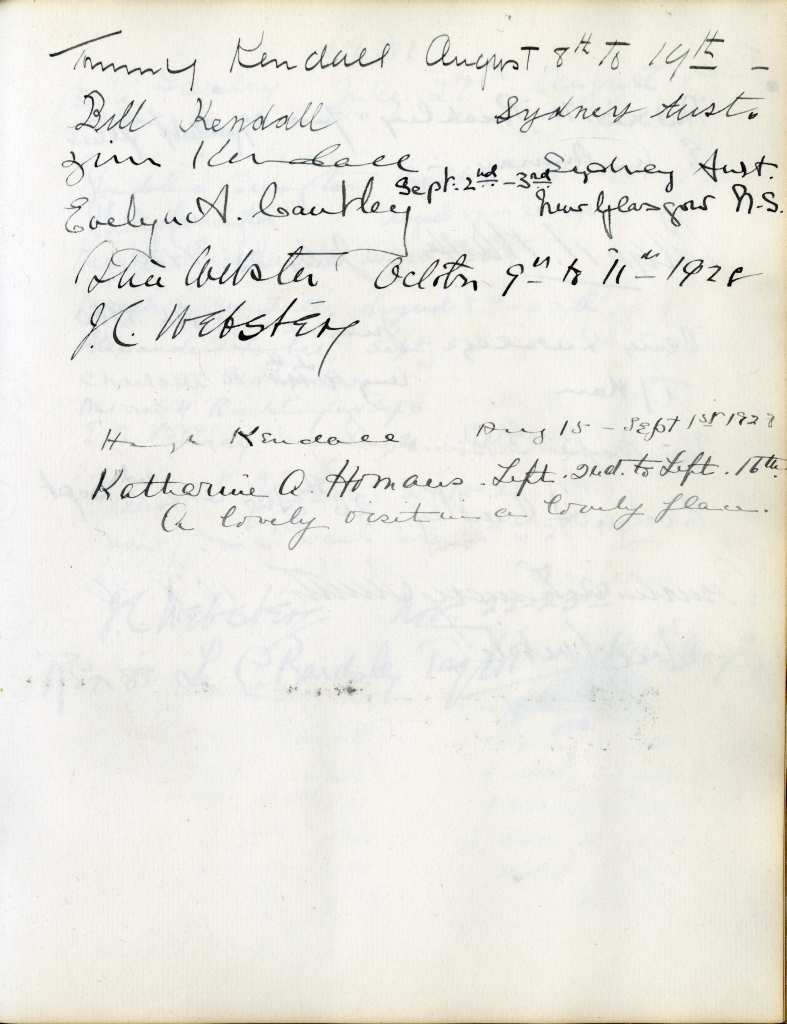 Tommy Kendall August 8th to 19th -
Bill Kendall Sydney Aust.
Jim Kendall Sydney Aust.
Evelyn A. Cantley Sept. 2nd - 3rd New Glasgow N.S.
Webster October 9th to 11th 1928
J.C. Webster
Hugh Kendall Aug 15 - Sept 1st 1928
Katherine A. Homans. Sept. 2nd. to Sept. 16th.
A lovely visit in a lovely place.